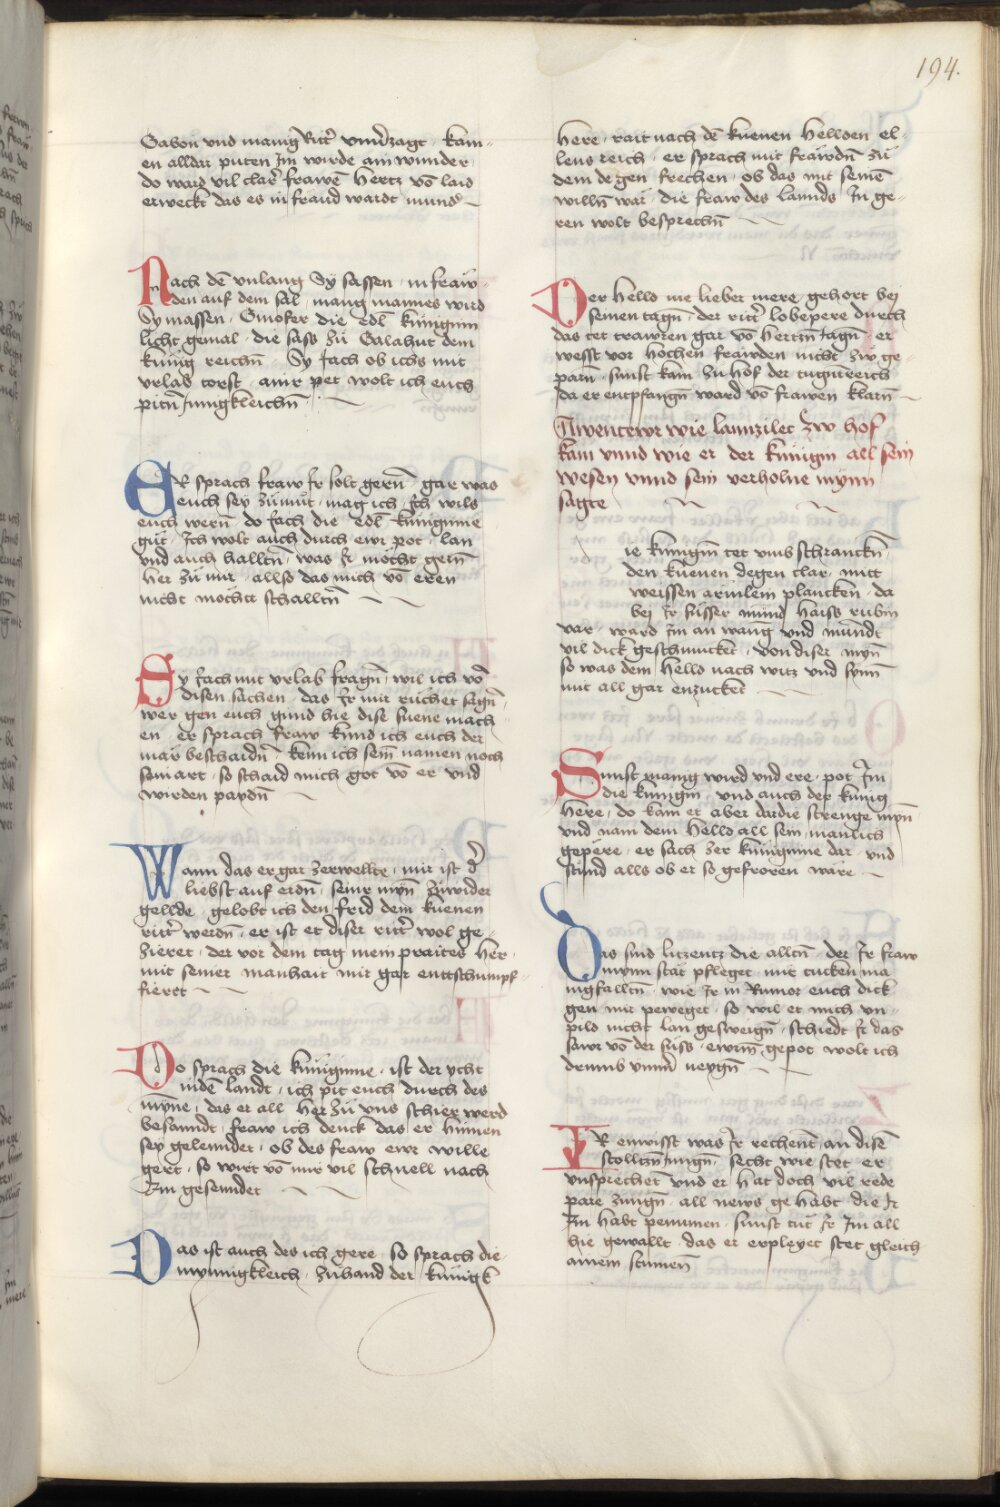 194.
Gabon vnd manig Ritter vnuerzagt · kam-
en alldar puten Im wirde am wunder ·
do ward vil clarer frawen hertz von laid
erweckt das es in fraud wardt munder
Nach dem vnlang Sy sassen · in fraw-
den auf dem sal · manig mannes wird
Sy massen · Ginofer die edl künigin
licht gemal · die sass zů Galahut dem
künig reichen · Sy sach ob ichs mit
vrlab torst · ainr pet wolt ich euch
piten Jungkleichn̄ ·
Er sprach fraw Ir solt gern̄ · gar was
euch sey zůmůt · mag ich Ich wils
euch wern̄ · do sach die edl künigine
gůt · Ich wolt auch durch ewr pet · lan
vnd auch hallten · was Ir möcht gern̄
her zů mir · allso das mich vō eren
nicht möcht schallten̄
Sy sach mit vrlab fragn̄ · wil ich vō
disen sachen · das Ir mir růchet sagn̄ ·
wer gen euch gund hie dise suene mach-
en · er sprach fraw kund ich euch der
mär beschaidn̄ · kenn ich sein namen noch
sein art · so schaid mich got vō er vnd
wirden paydn̄
Wann das er gar zerwellte · mir ist d̄
liebst auf erdn̄ · seinr myn̄ zůwider
gellde · gelobt ich den frid dem kuenen
ritter werdn̄ · er ist et diser ritter wol ge-
zieret · der vor dem tag mein praites her ·
mit seiner manhait mir gar enttschumpf-
fieret
Do sprach die küniginne · ist der ycht
in dem landt · ich pit euch durch des
myne · das er all her zů vns schier werd
besanndt · fraw ich denck das er hinnen
sey gelenndet · ob des fraw ewr wille
gert · so wirt vō mir vil schnell nach
Im gesenndet
Das ist auch des ich gere · so sprach die
mynnigkleich · zůhand der künigk
here · rait nach dē kuenen helloen el-
lens reich · er sprach mit frawdn̄ zů
dem degen frechen · ob das mit seinē
willn̄ wär · die fraw des lannds In ge-
ren wolt besprechn̄
Der helld nie lieber mere · gehort bej
seinen tagn̄ · der ritter lobepere durch
das tet trawren gar vō hertzn̄ Jagn̄ · er
wesst vor hochen frawden nicht zw ge-
parn̄ · sunst kam zu hof der tugntreich
da er entpfangn̄ ward vō frawen klarn̄
Awentewr wie lannzilet zw hof
kam vnnd wie er der künigin all sein
wesen vnnd sein verholne mynn
sagte
ie künigin tet vmbschrancken̄
den kuenen degen clar · mitt
weissen ärmlein plancken̄ · da
bej Ir süsser mund haiss rubin
var · ward Im an wang vnd munde
vil dick geschmucket · von diser myn̄
so was dem helld nach witz vnd synn̄
mit all gar enzucket
Sunst manig wird vnd ere · pot Im
die künigin · vnd auch der künig
here · do kam et aber dar die strenge myn̄
vnd nam dem helld all sein mänlich
gepere · er sach zer küniginne dar · vnd
stund alls ob er so gefroren ware
Das sind litzentz die allten̄ · der Ir fraw
mynn stät pfleget · mit tucken ma
nigfallten̄ · wie Ir in Rumor euch dick
gen mir peweget · so wil er mich vn-
pild nicht lan gesweign̄ · schiedt Ir das
sawr vō der süss · ewrm gepot wolt ich
drumb ymm̄ neygn̄
Ir enwisst was Ir rechent an disē
stollten Jungn̄ · secht wie stet er
vnsprechet vnd er hat doch vil rede
pare zungn̄ · all news gehabt die Ir
Im habt penumen · sunst tut Ir Im all
hie gewallt · das er erpleyet stet gleich
ainem stumen̄